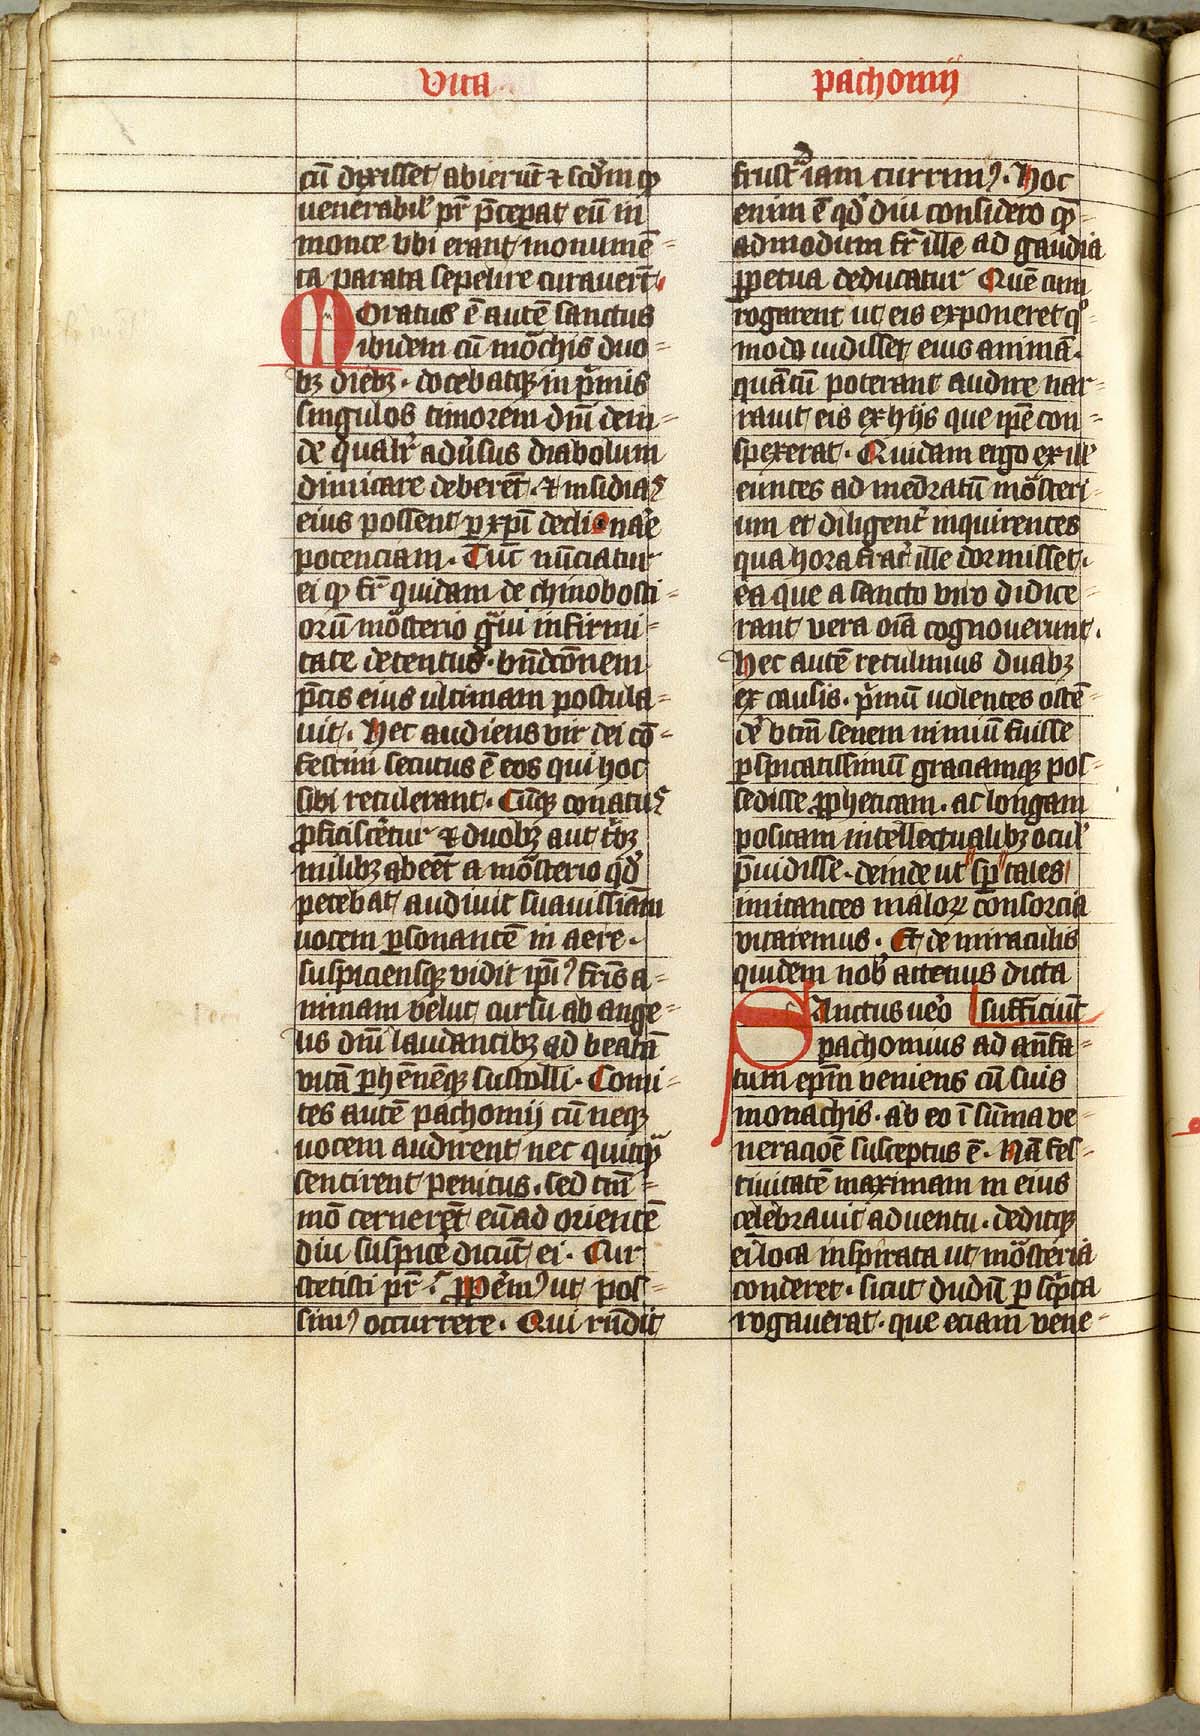 Vita
pachomij
cū dixisset abierūt ⁊ scdm qͥ
venerabil' pr̄ p̄ceperat eū in
monte vbi erant monumē-
ta parata sepelire curaverūt.
Moratus ē autē sanctus
ibidem cū mōchis duo-
bꝫ diebꝫ. docebatqꝫ in pͥmis
singulos timorem dn̄i dein-
de qualr̄ adūsus diabolum
dimicare deberēt. ⁊ insidias
eius possent ꝑ xp̄i declinar̄e
potenciam. Cūc nūciatur
ei qͥ fr̄ quidam de chinobosti-
orū mōsterio gͣui infirmi-
tate detentus. bn̄dcōnem
p̄cis eius ultimam postula-
uit. Hec audiens vir dei cō-
festim secutus ē eos qui hoc
sibi retulerant. Cūqꝫ conatus
ꝓficiscēretur ⁊ duobꝫ aut tͥbꝫ
milibꝫ abeēt a mōsterio qd̄
petebat audivit suavissimam
vocem ꝑsonantē in aere.
suspiciensqꝫ vidit ip̄iꝰ fr̄is a-
nimam velut cursu ab ange-
lis dn̄m laudantibꝫ ad beatā
vitā ꝑhēnēqꝫ sustolli. Comi-
tes autē pachomij cū neqꝫ
vocem audirent nec quitqͣ
sentirent penitus. sed tm̄-
mō cernerēt eū ad orientē
diu suspicē dicūt ei. Cur
stetisti pr̄. ꝓpēmꝰ ut pos-
simꝰ occurrere. Qui rn̄dit
frustͣ iam currimꝰ. Hoc
enim ē qd̄ diu considero qͥ-
admodum fr̄ ille ad gaudia
ꝑpetua deducatur Quē cum
rogarent ut eis exponeret qͦ-
modo vidisset eius animā.
quātū poterant audire nar-
ravit eis ex hijs que ip̄e con-
spexerat. Quidam ergo ex ill'
euntes ad memoratū mōsteri-
um et diligentͥ inquirentes
qua hora frat̄ ille dormisset.
ea que a sancto viro didice-
rant vera oīa cognoverunt.
Hec autē retulimus duabꝫ
ex causis. pͥmū volentes ostē-
de' vtm̄ senem nimiū fuisse
ꝑspicatissimū graciamqꝫ pos-
sedisse ꝓpheticam. ac longam
positam intellectualibꝫ ocul'
p̄vidisse. deinde ut sp̄itales
imitantes malorꝫ consorcia
vitaremus. Et de miraculis
quidem nob' actenus dicta
sufficiūt
Sanctus vēo
pachomius ad an̄fa-
tum ep̄m veniens cū suis
monachis. ab eo ī sūma ve-
neracione susceptus ē. Nā fes-
tivitatē maximam in eius
celebravit adventu. deditqꝫ
ei loca inspirata ut mōsteria
conderet. sicut dudū ꝑ scͥpta
rogaverat. que eciam vene-